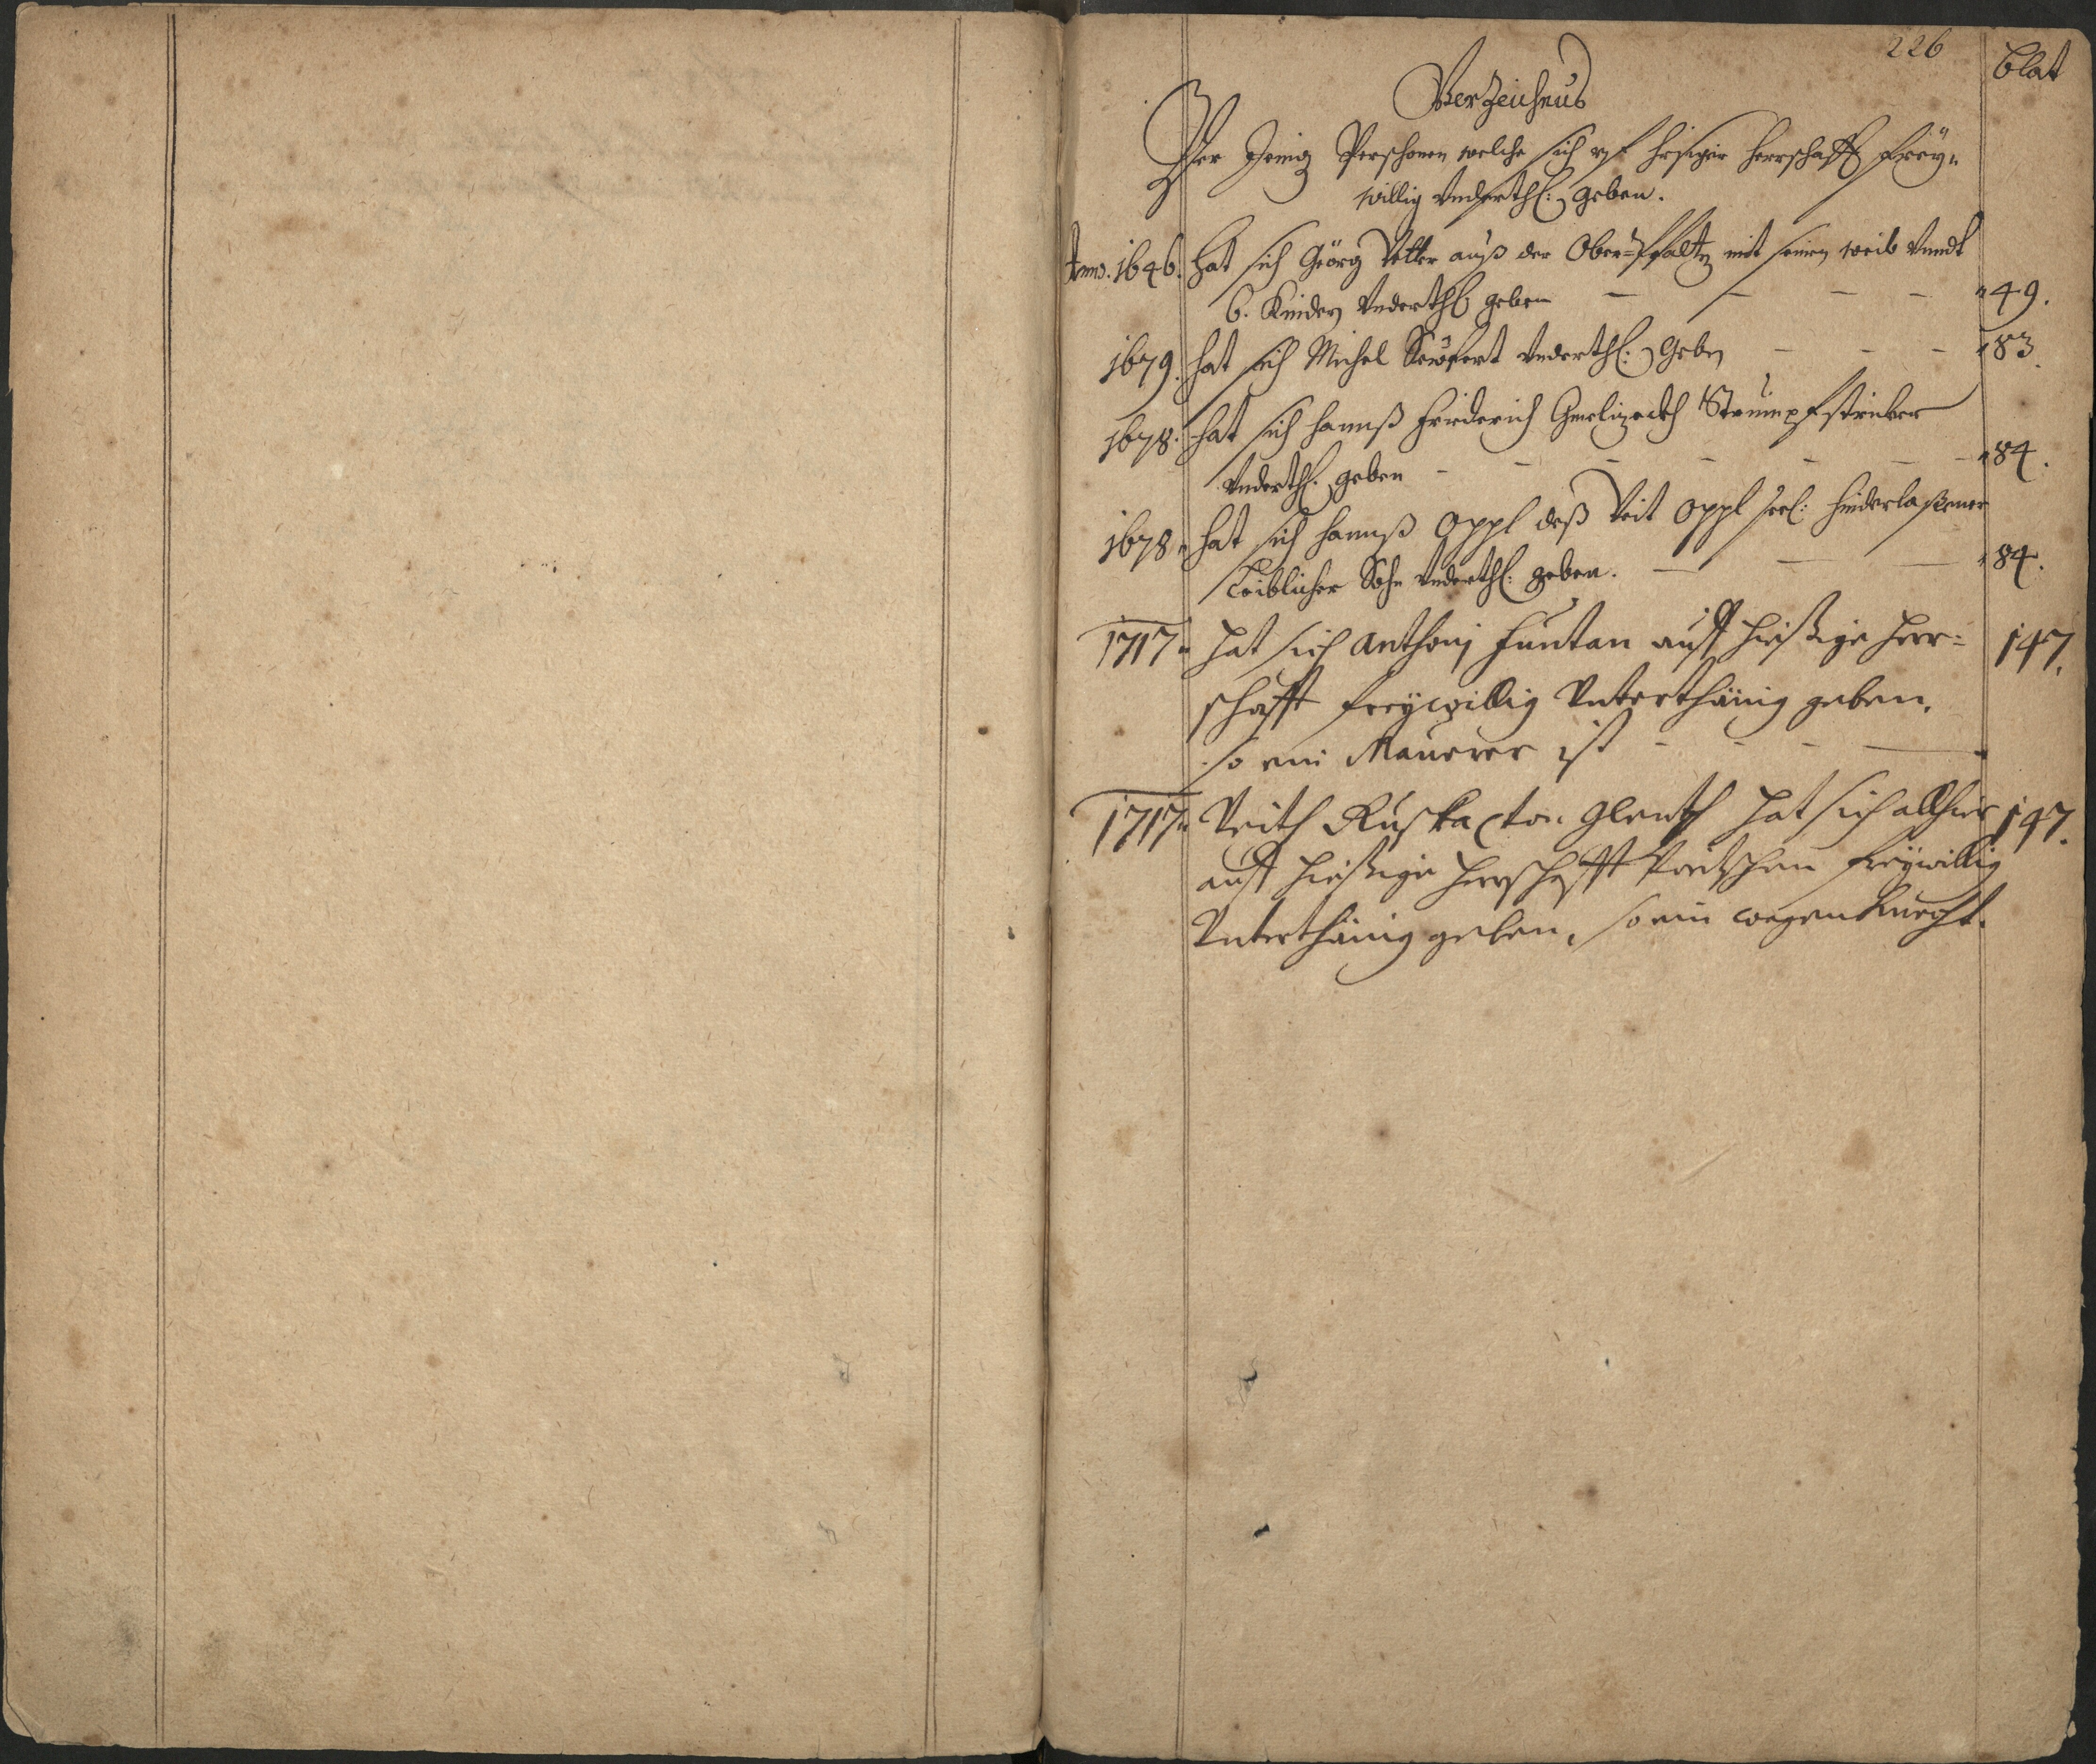 226
blat
Verzeichnus
Der Jenig Perschonen welche sich vf hisiger Herrschafft frey„
willig Underth: geben.
Anno. 1646. Hat sich Geörg Vetter auß der Ober=Pfaltz mit seinen weib Unndt
6. Kinder Underth geben — — — — „49.
1679. hat sich Michel Seüfert Underth: Geben — — — „83.
1678. hat sich Hannß Friderich Strümpfstricker
Underth: geben — — — — — — „84.
1678„ hat sich Hannß Oppl deß Veit Oppl seel: hinderlaßener
Leiblicher Sohn Underth: geben. — — — „84.
1717„ hat sich Anthonj Funtan auff hießige Herr= 147.
schafft freywillig Unterthänig geben,
so ein Maurer ist — — — —
1717„ Veith Ruska von hat sich allhier 147.
auff hießige Herrschafft freywillig
Unterthänig geben, so ein wagenknecht.